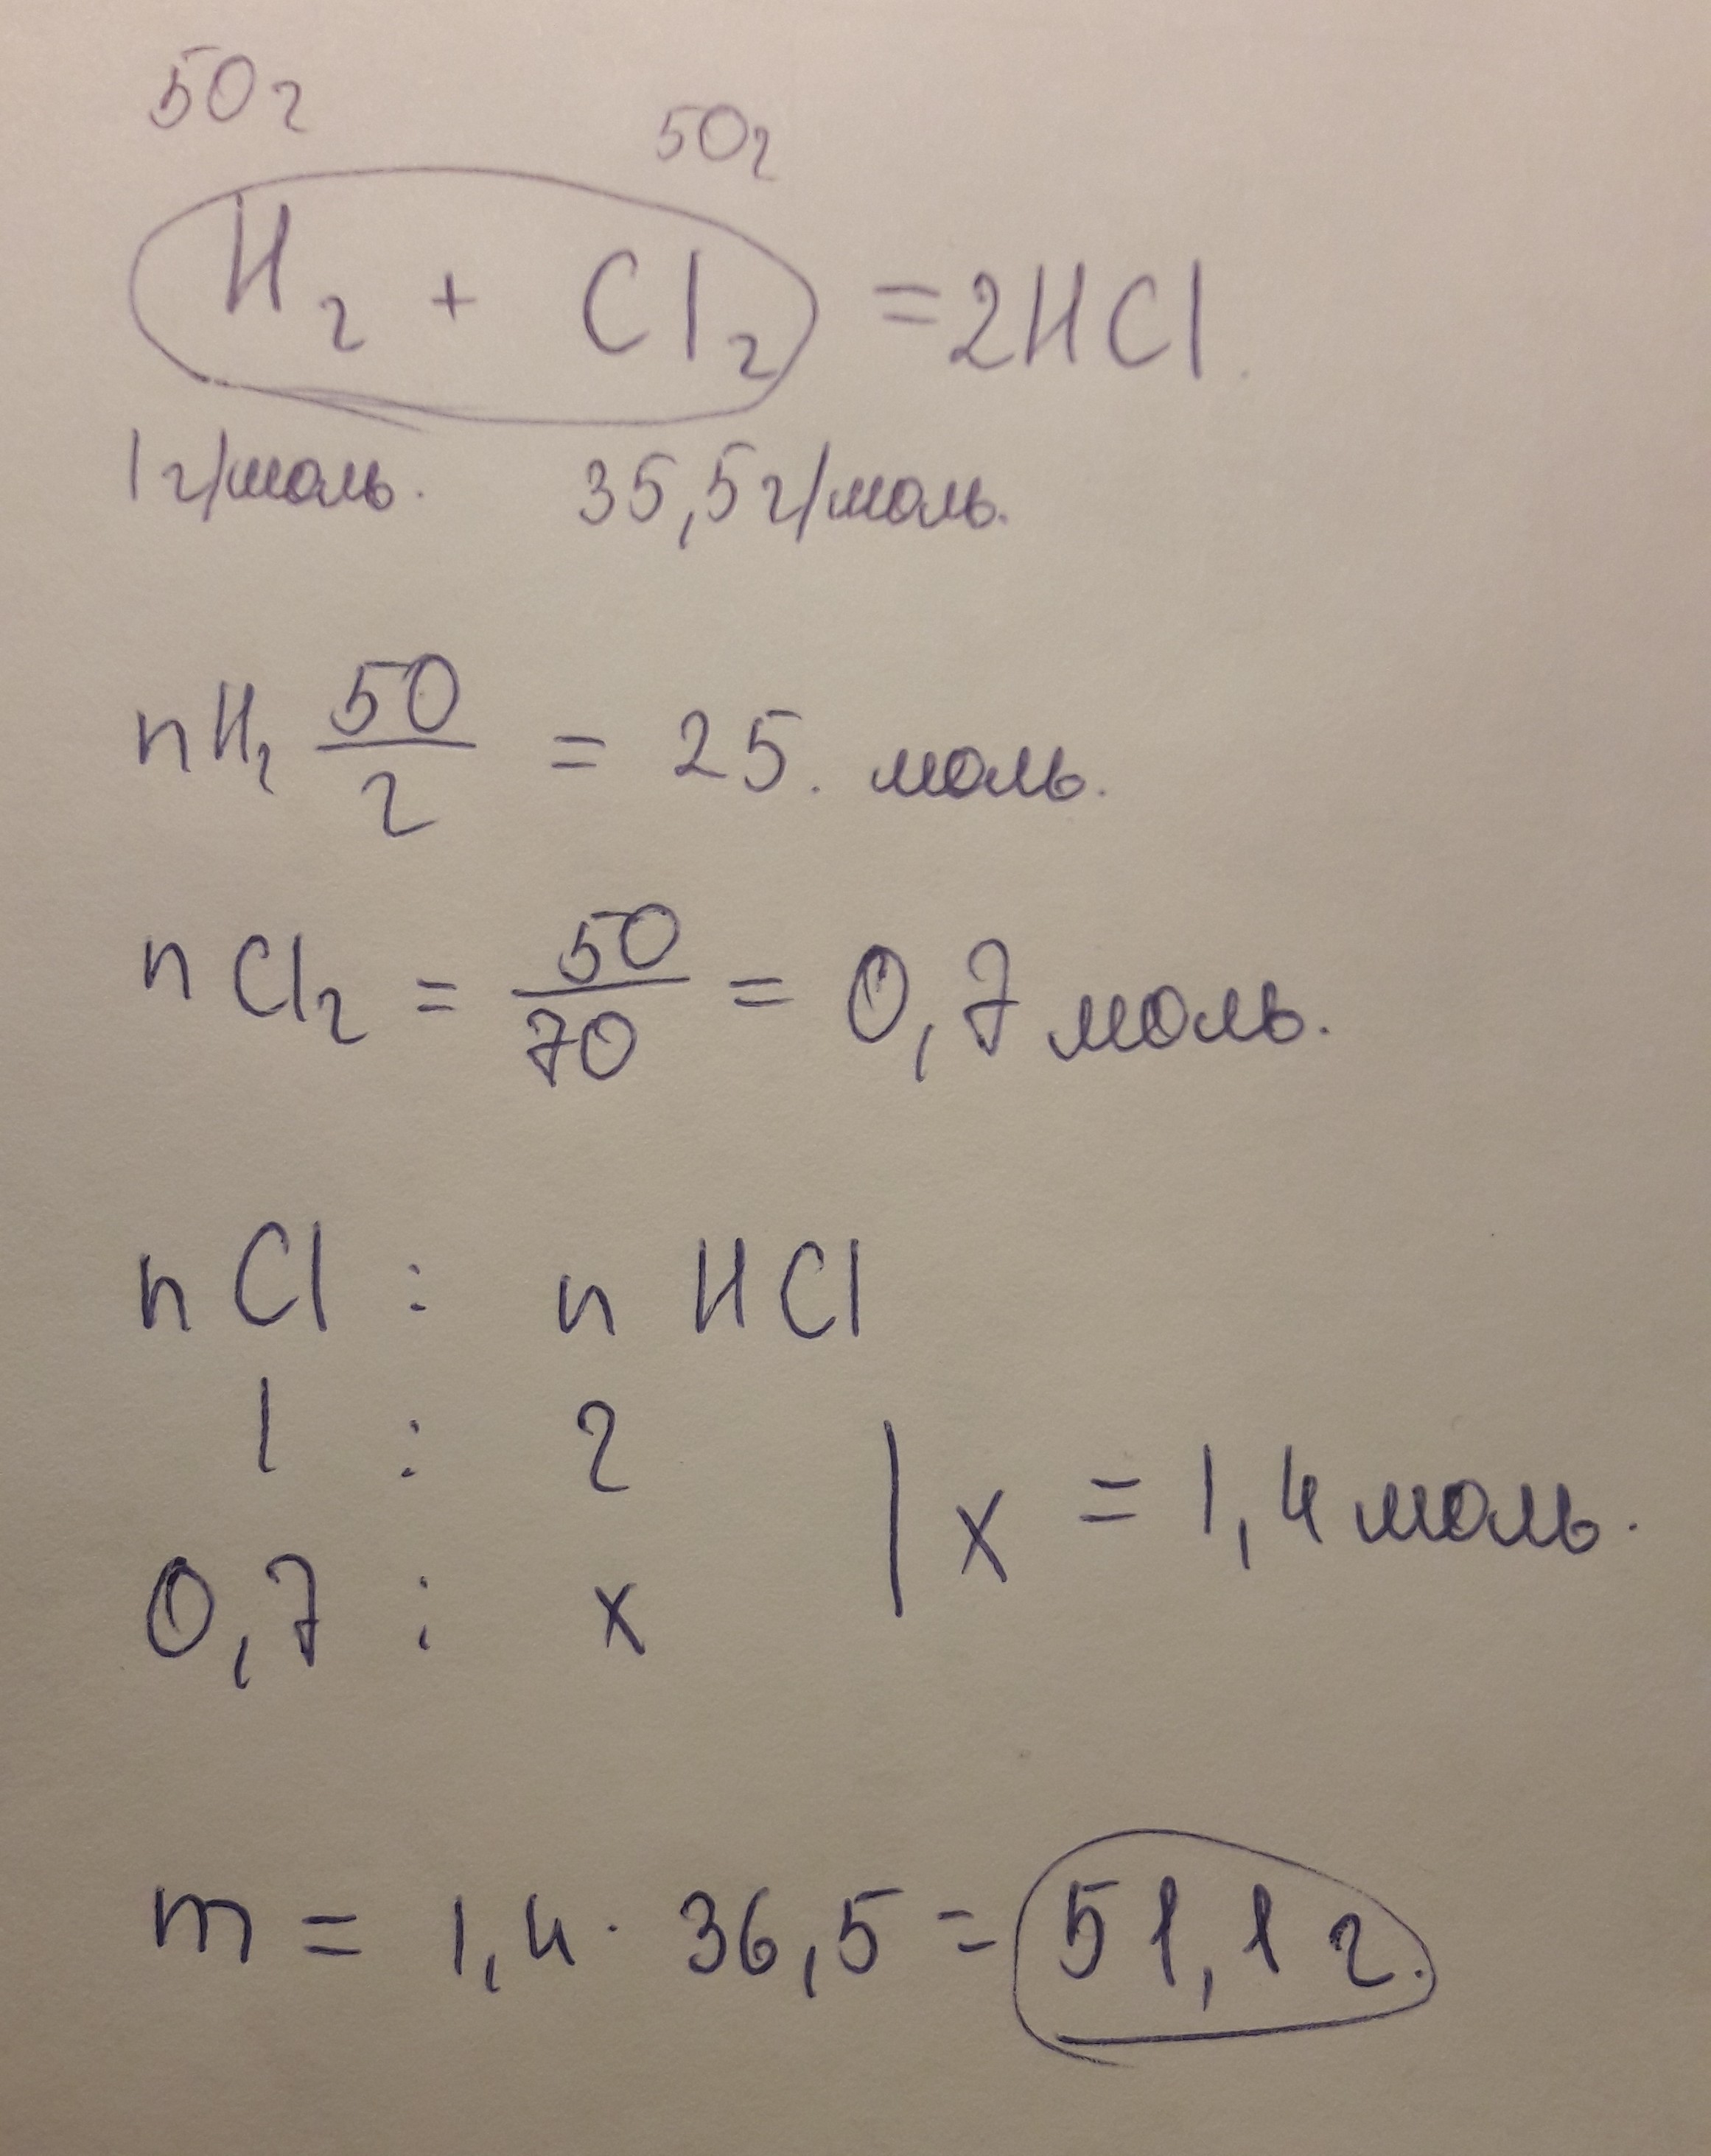 50г 50г
H₂ + Cl₂ = 2HCl.
1г/моль. 35,5г/моль.
nH₂ 50/2 = 25. моль.
n Cl₂ = 50/70 = 0,7 моль.
n Cl : n HCl
1 : 2
| x = 1,4 моль.
0,7 : x
m = 1,4 · 36,5 = 51,1 г.